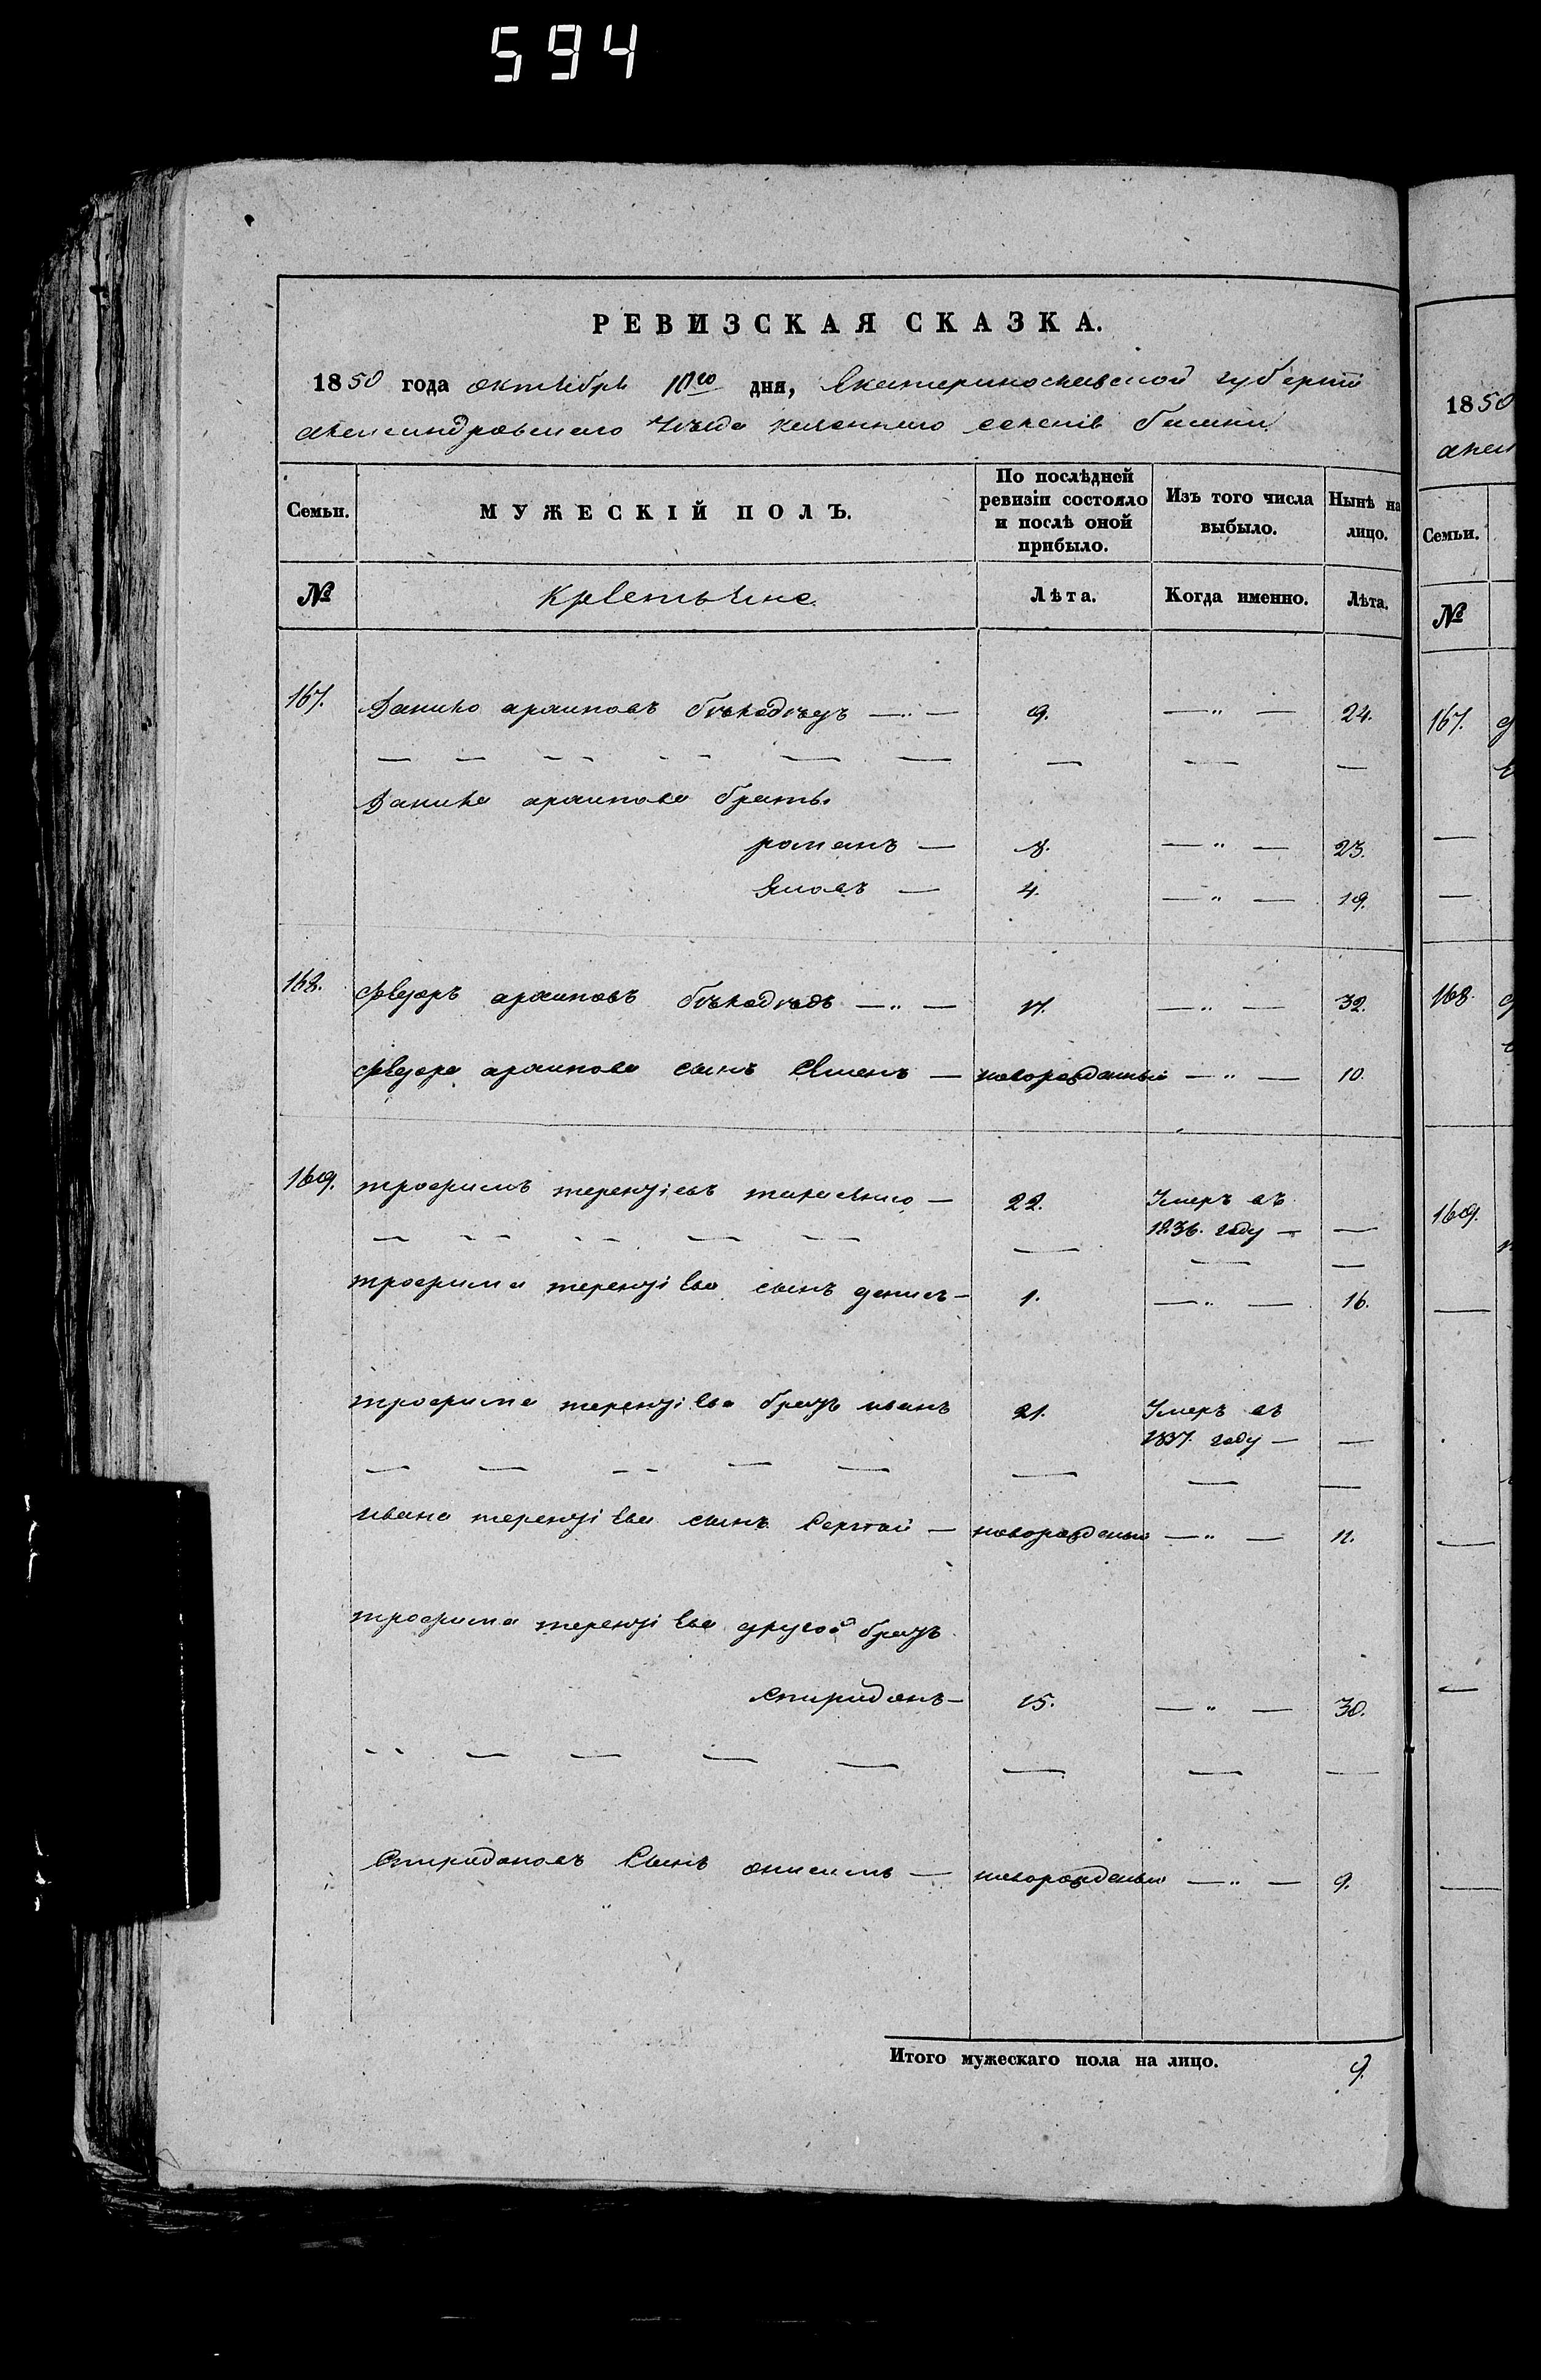 594
РЕВИЗСКАЯ СКАЗКА.
1850 года октября 10го дня, Екатеринославской губернии
александровского уезда казенного селения
Семьи. МУЖЕСКІЙ ПОЛЪ. По послѣдней ревизіи состояло и послѣ оной прибыло. Изъ того числа выбыло. Нынѣ на лицо.
№ крестьяне Лѣта. Когда именно. Лѣта.
167. Данило архиповъ — " — 9. — " — 24.
Данила архипова братья
романъ — 8. — " — 23.
Яковъ — 4. — " — 19.
168. Федоръ архиповъ — " — 17. — " — 32.
Федора архипова сынъ — новорожденный — " — 10.
169. трофимъ терентіевъ — 22. Умеръ въ
1836. году — —
трофима терентіева сынъ денисъ — 1. — " — 16.
трофима терентіева братъ иванъ 21. Умеръ въ
1837. году — —
ивана терентіева сынъ Сергей — новорожденный — " — 11.
трофима терентіева другой братъ
спиридонъ — 15. — " — 30.
Спиридоновъ Сынъ онисимъ — новорожденный — " — 9.
Итого мужескаго пола на лицо. 9.
1850
Семьи.
№
167.
168.
169.